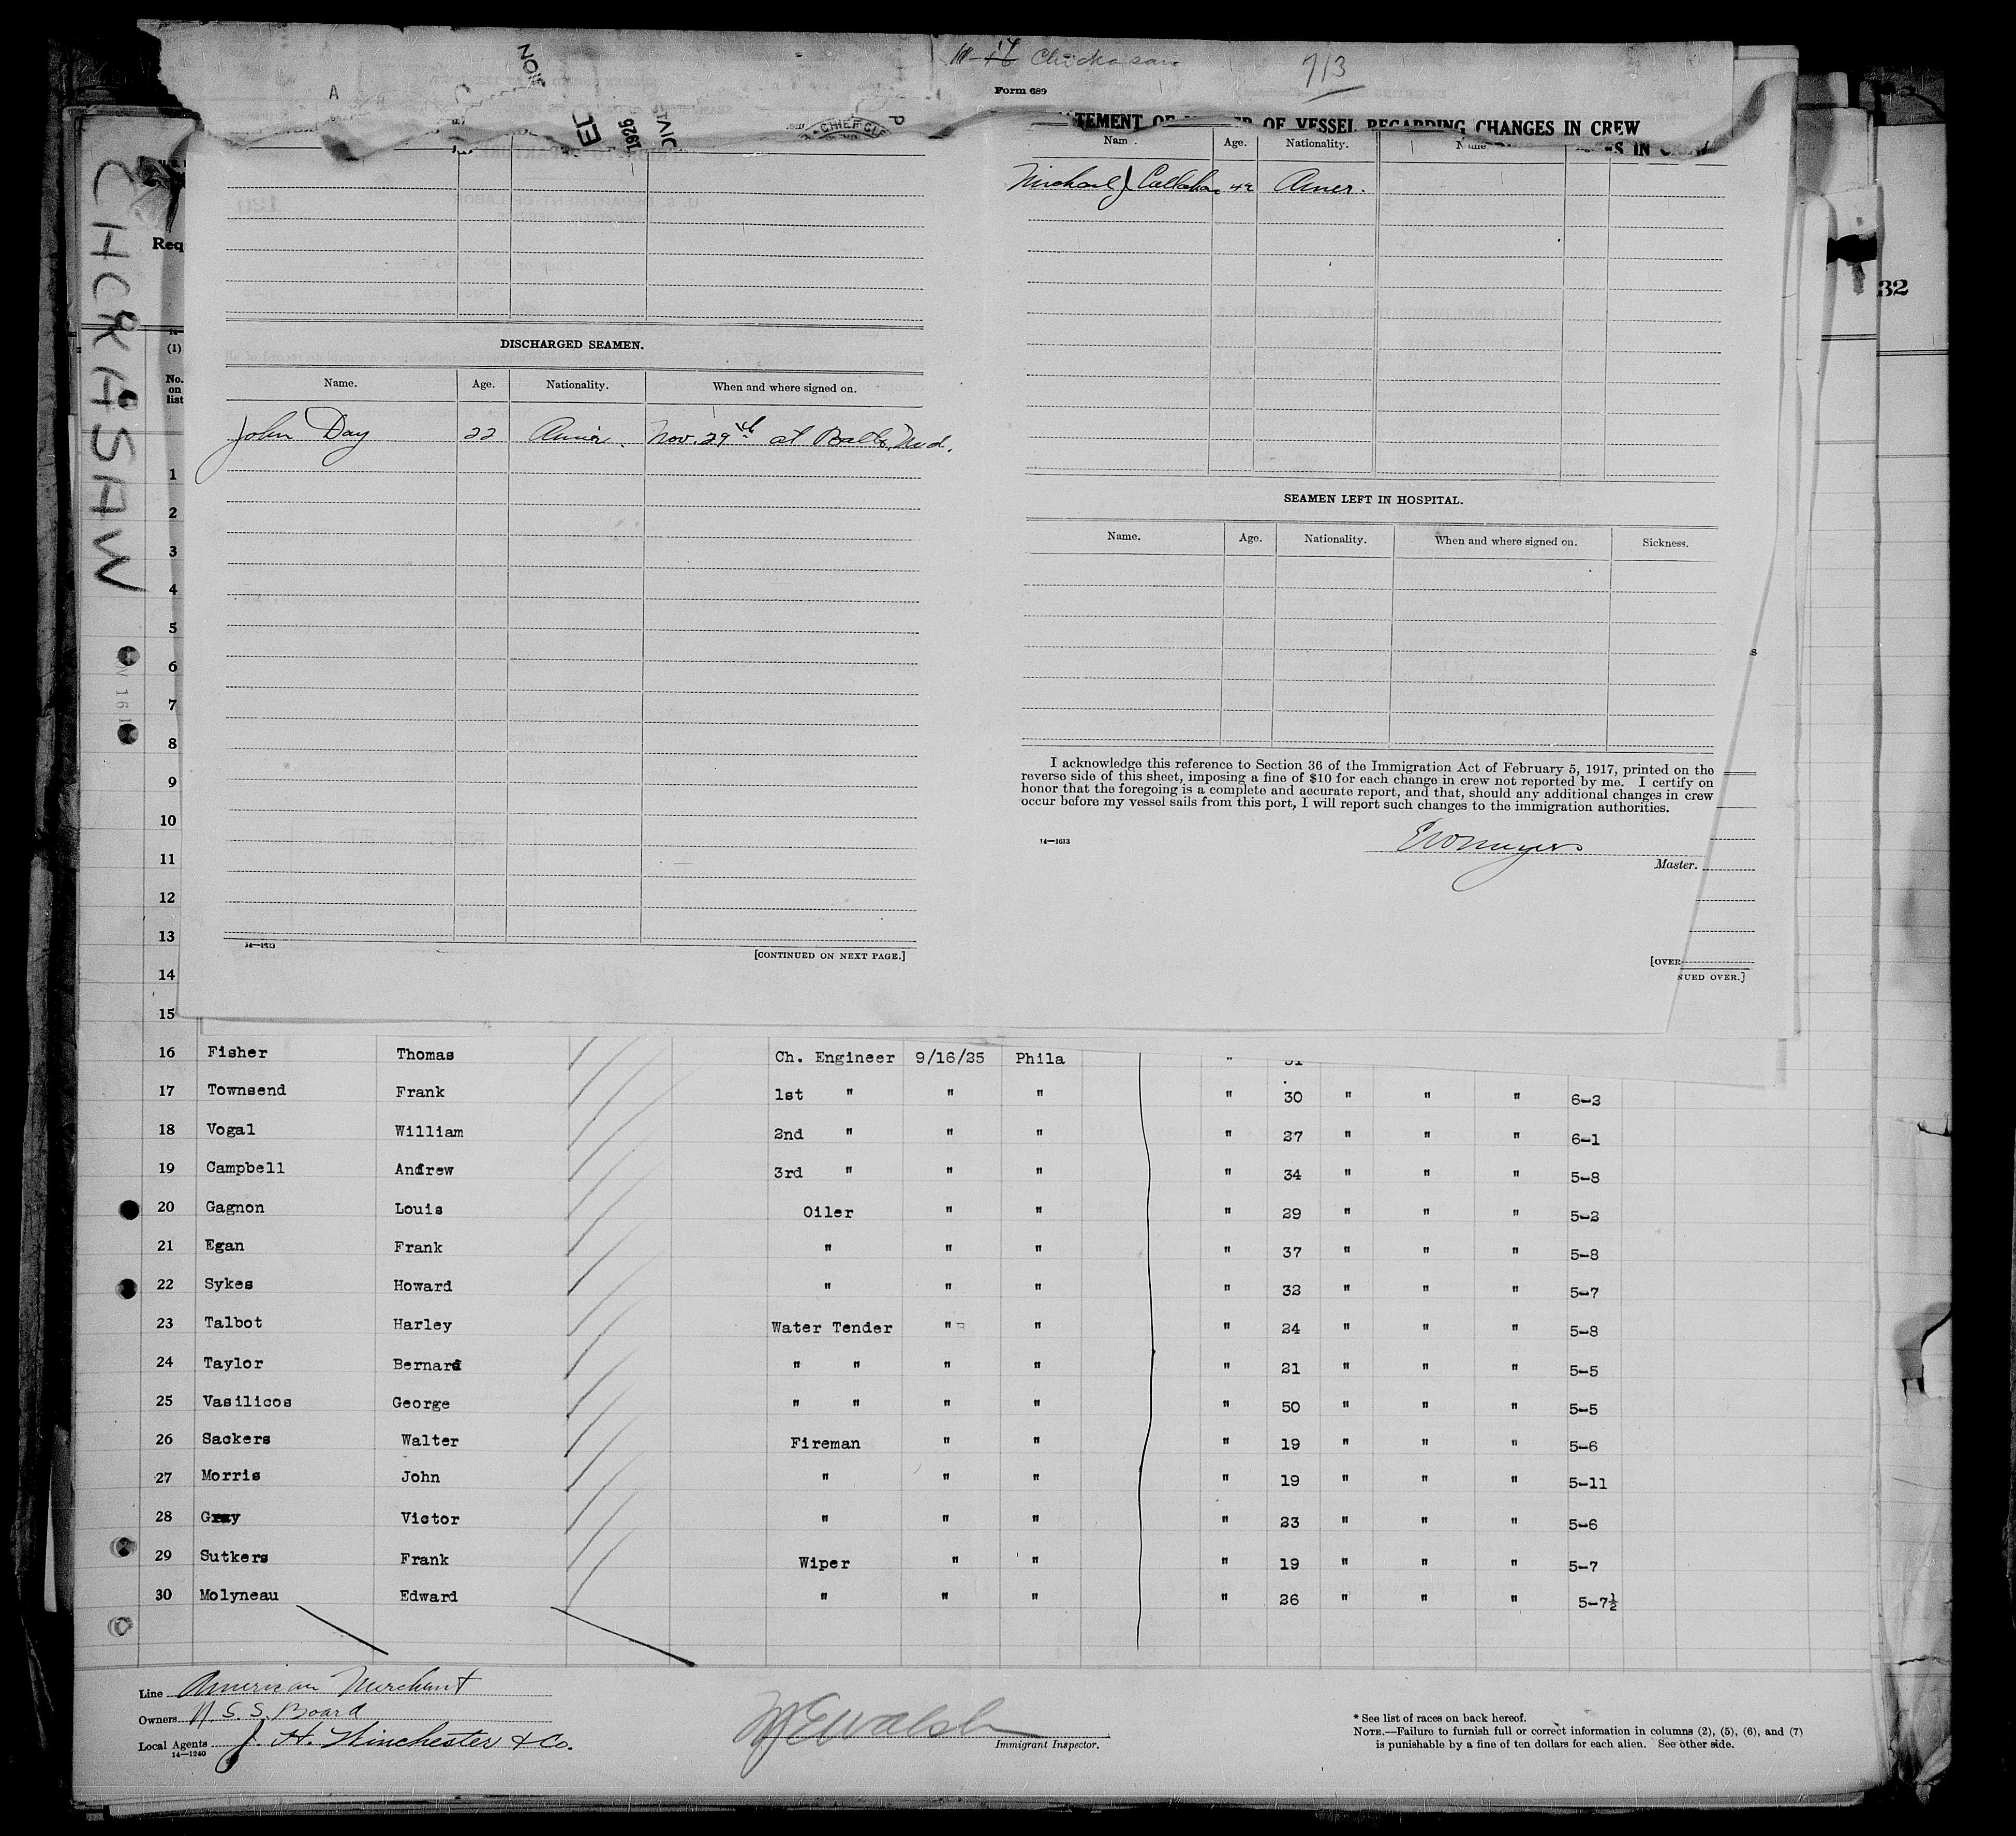 Chickasaw 713
Form 689
A
NOI
1925
CHIEF CL
TEMENT OF OF VESSEL REGARDING CHANGES IN CREW
S IN CREW
Age. Nationality.
Michael J Callahan 42 Amer.
CHCKASAW
Req
32
(1)
No. on list
DISCHARGED SEAMEN.
Name. Age. Nationality. When and where signed on.
John Day 22 Amer. Nov. 29th at Balto, Md.
SEAMEN LEFT IN HOSPITAL.
Name. Age. Nationality. When and where signed on. Sickness.
I acknowledge this reference to Section 36 of the Immigration Act of February 5, 1917, printed on the
reverse side of this sheet, imposing a fine of $10 for each change in crew not reported by me. I certify on
honor that the foregoing is a complete and accurate report, and that, should any additional changes in crew
occur before my vessel sails from this port, I will report such changes to the immigration authorities.
14—1613
Master.
14—1613
[CONTINUED ON NEXT PAGE.]
[OVER
NUED OVER.]
1
2
3
4
5
6
7
8
9
10
11
12
13
14
15
16 Fisher Thomas Ch. Engineer 9/16/25 Phila "
17 Townsend Frank 1st " " " " 30 " " " 6-2
18 Vogal William 2nd " " " " 27 " " " 6-1
19 Campbell Andrew 3rd " " " " 34 " " " 5-8
20 Gagnon Louis Oiler " " " 29 " " " 5-2
21 Egan Frank " " " " 37 " " " 5-8
22 Sykes Howard " " " " 32 " " " 5-7
23 Talbot Harley Water Tender " " " 24 " " " 5-8
24 Taylor Bernard " " " " " 21 " " " 5-5
25 Vasilicos George " " " " " 50 " " " 5-5
26 Sackers Walter Fireman " " " 19 " " " 5-6
27 Morris John " " " " 19 " " " 5-11
28 Gray Victor " " " " 23 " " " 5-6
29 Sutkers Frank Wiper " " " 19 " " " 5-7
30 Molyneau Edward " " " " 26 " " " 5-7½
Line American Merchant
Owners U. S. S. Board
Local Agents J. H. Winchester & Co.
14—1240
W E Walsh
Immigrant Inspector.
* See list of races on back hereof.
NOTE.—Failure to furnish full or correct information in columns (2), (5), (6), and (7)
is punishable by a fine of ten dollars for each alien. See other side.